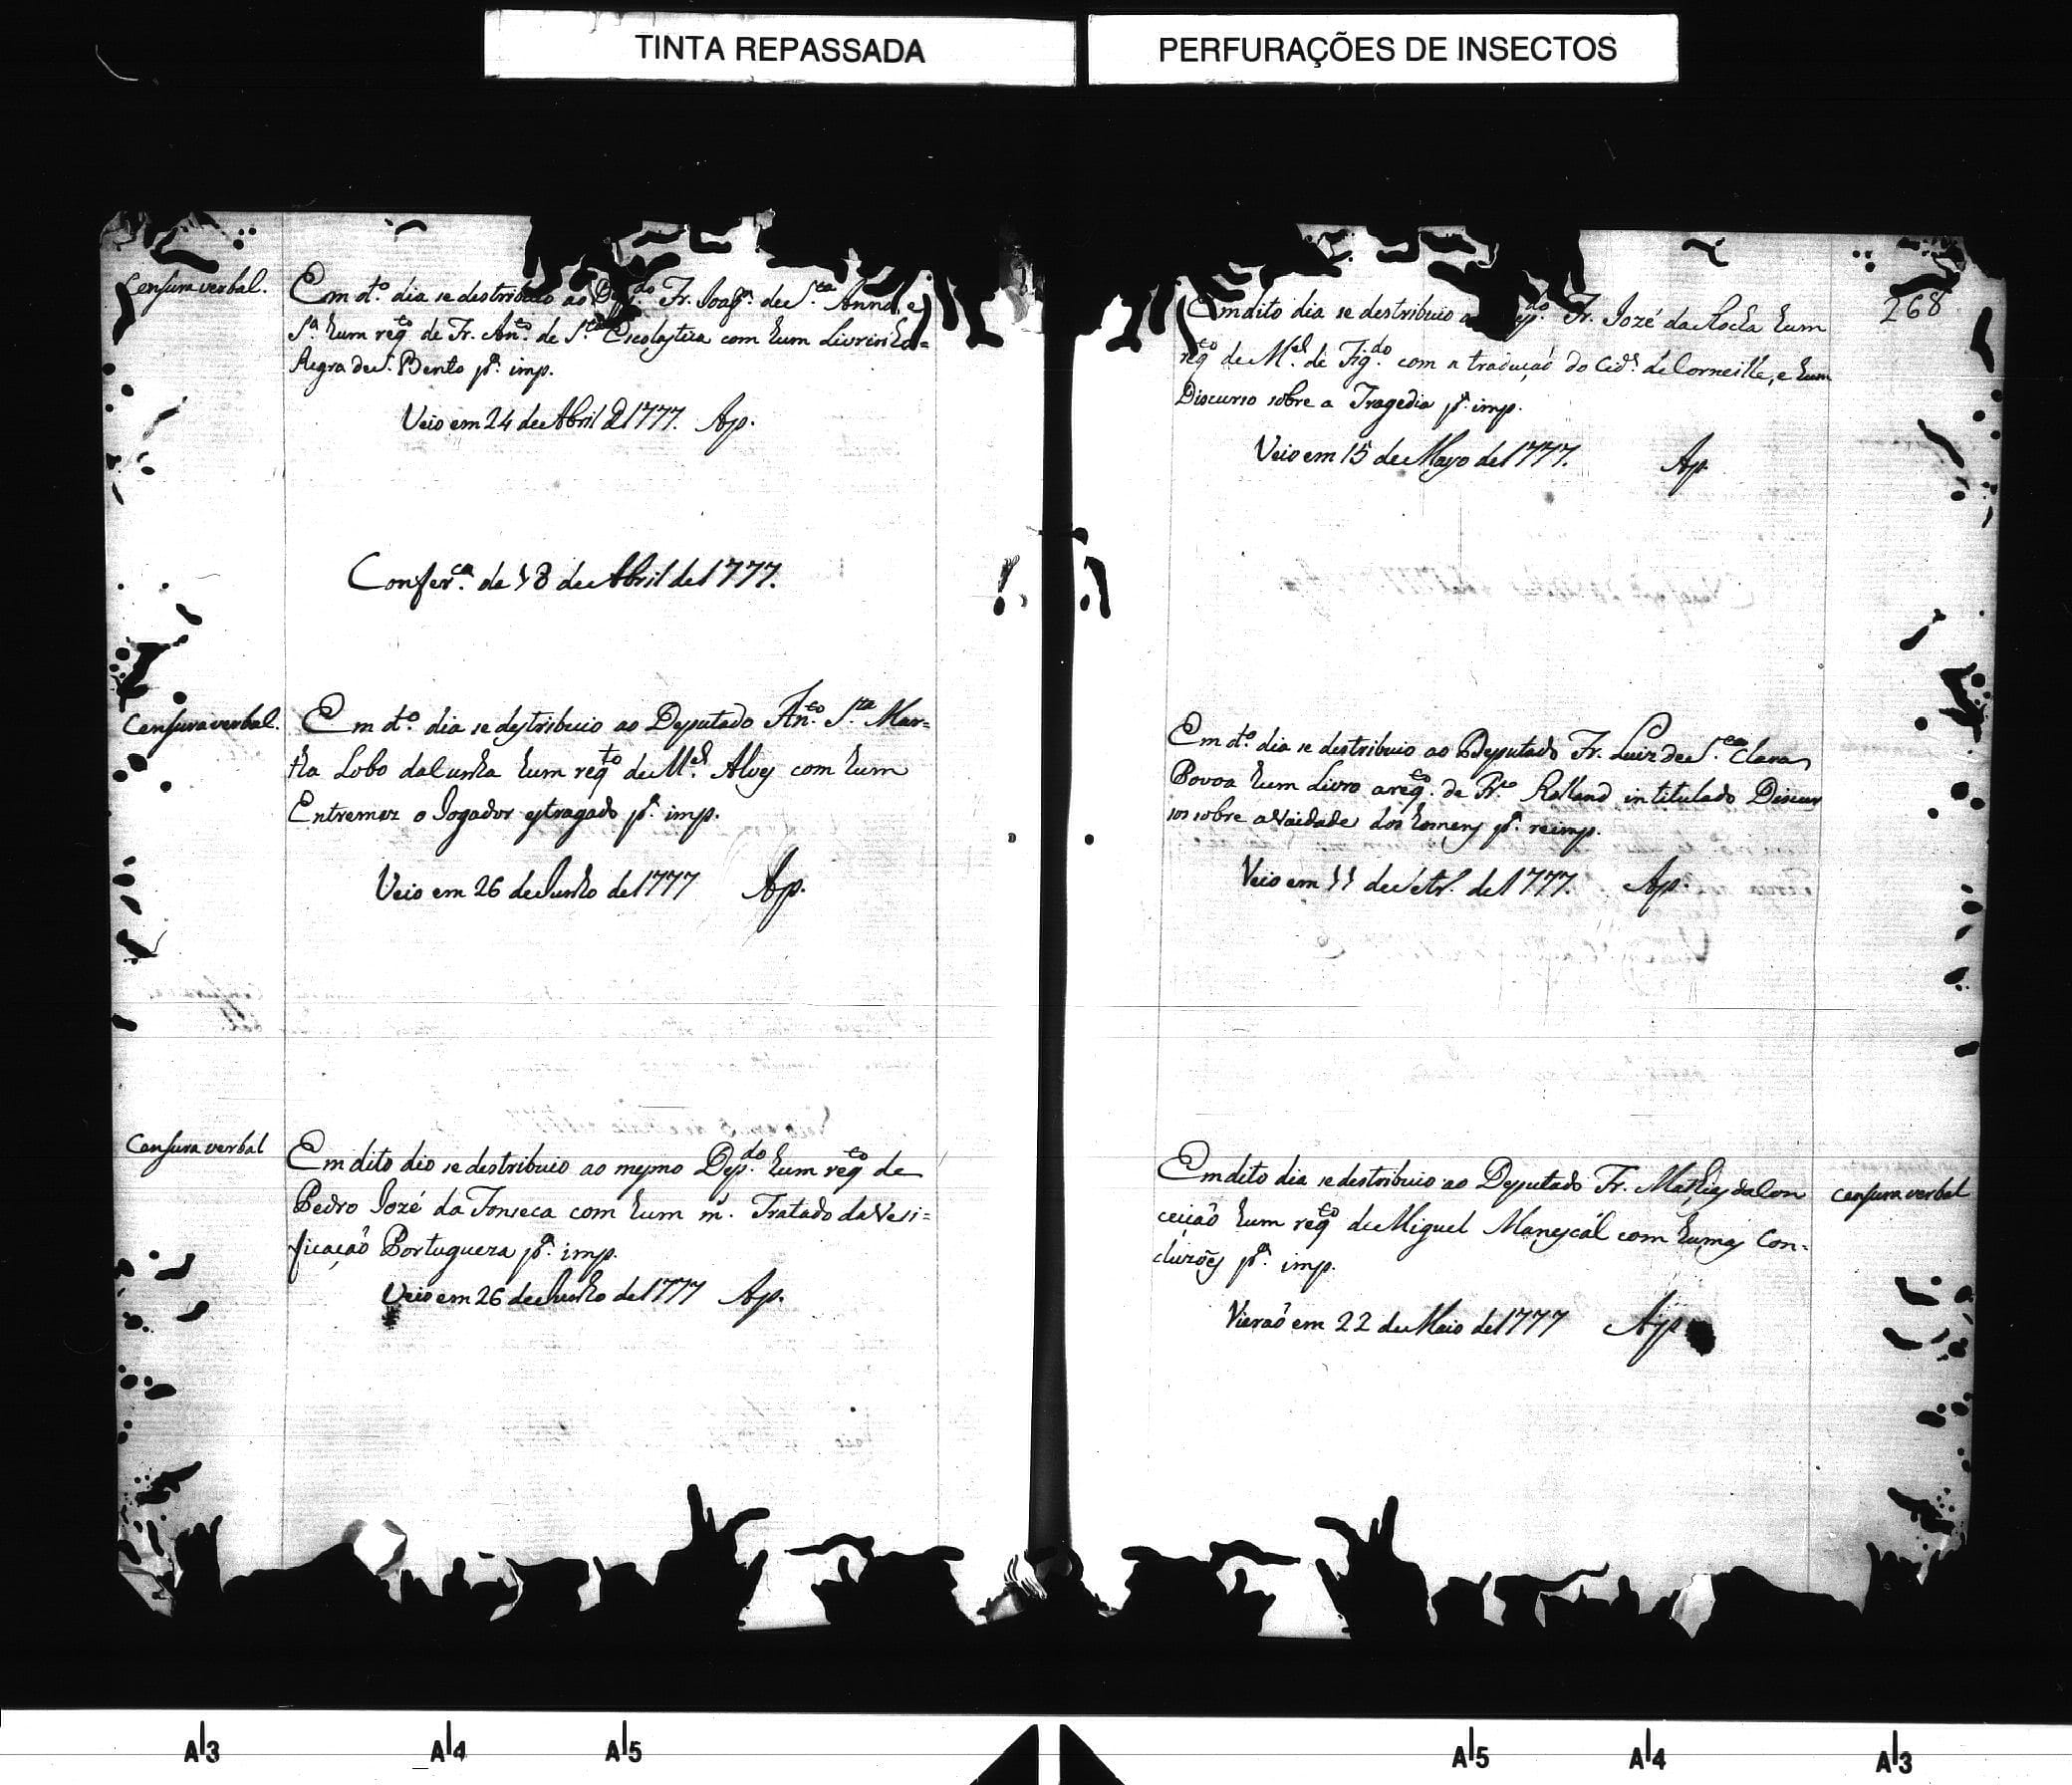 TINTA REPASSADA
PERFURAÇÕES DE INSECTOS
Censura verbal.
Em dt.º dia se destribuio ao Dep.do Fr. Joaq.m de S.ta Anna, e
S.ª hum req.to de Fr. An.to de S.ta Escolastica com hum Livrinho=
Regra de S. Bento p.ª imp.
Veio em 24 de Abril de 1777. Ap.
Confer.ca de 18 de Abril de 1777.
Censura verbal.
Em dt.º dia se destribuio ao Deputado An.to S.ta Mar=
tha Lobo da Cunha hum req.to de M.el Alves com hum
Entremez o Jogador estragado p.ª imp.
Veio em 26 de Junho de 1777 Ap.
Censura verbal
Em dito dia se destribuio ao mesmo Dep.do hum req.to de
Pedro Jozé da Fonseca com hum m. Tratado da Versi=
ficaçaõ Portugueza p.ª imp.
Veio em 26 de Junho de 1777 Ap.
268
Em dito dia se destribuio a Dep.do Fr. Jozé da Rocha hum
req.to de M.el de Fig.do com a traduçaõ do Cid. de Corneille, e hum
Discurso sobre a Tragedia p.ª imp.
Veio em 15 de Mayo de 1777. Ap.
Em dt.º dia se destribuio ao Deputado Fr. Luiz de S.ta Clara
Povoa hum Livro a req.to de Fr.co Rolland intitulado Discur
sos sobre a Vaidade dos homens p.ª reimp.
Veio em 11 de Setr. de 1777. Ap.
Em dito dia se destribuio ao Deputado Fr. Mathias da Con
ceiçaõ hum req.to de Miguel Manescal com humas Con=
cluzões p.ª imp.
censura verbal
Vieraõ em 22 de Maio de 1777 Ap
A3
A4
A5
A5
A4
A3